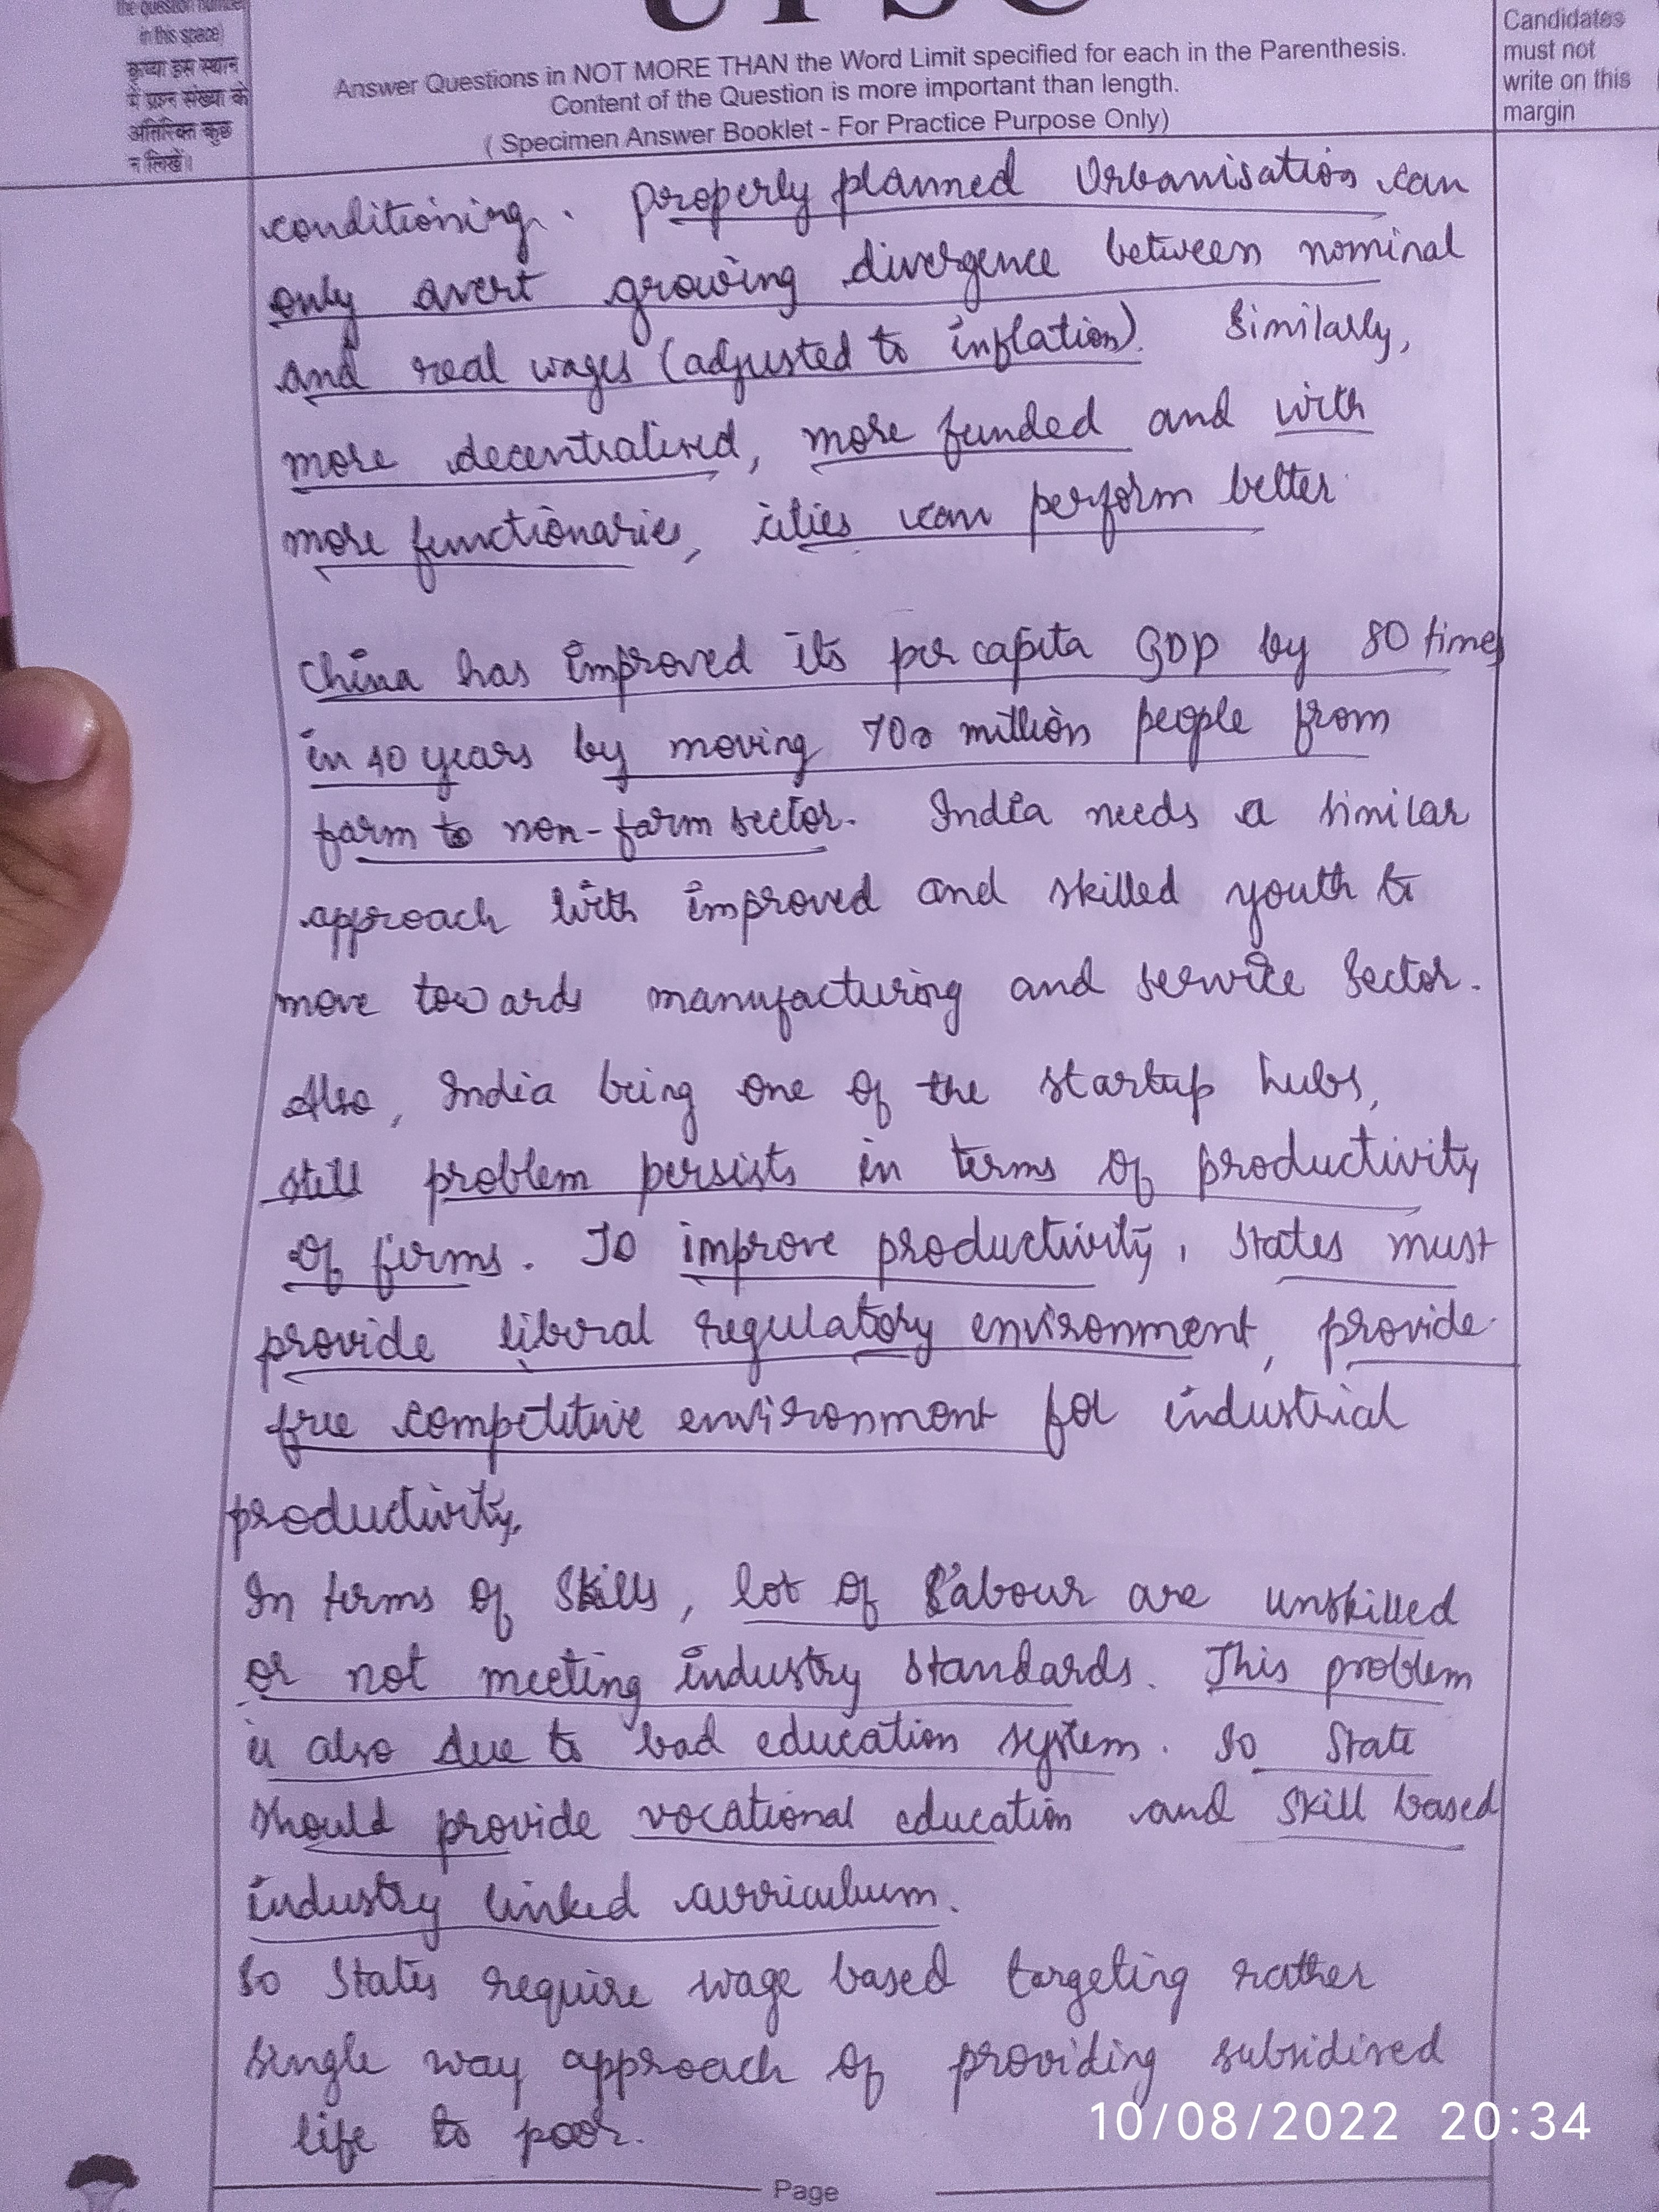 the question number
in this space)
कृप्या इस स्थान
में प्रश्न संख्या के
अतिरिक्त कुछ
न लिखें।
UPSC
Answer Questions in NOT MORE THAN the Word Limit specified for each in the Parenthesis.
Content of the Question is more important than length.
( Specimen Answer Booklet - For Practice Purpose Only)
Candidates
must not
write on this
margin
conditioning. Properly planned Urbanisation can
only avert growing divergence between nominal
and real wages (adjusted to inflation). Similarly,
more decentralised, more funded and with
more functionaries, cities can perform better
China has improved its per capita GDP by 80 times
in 40 years by moving 700 million people from
farm to non-farm sector. India needs a similar
approach with improved and skilled youth to
move towards manufacturing and service sector.
Also, India being one of the startup hubs,
still problem persists in terms of productivity
of firms. To improve productivity, states must
provide liberal regulatory environment, provide
free competitive environment for industrial
productivity.
In terms of skills, lot of Labour are unskilled
or not meeting industry standards. This problem
is also due to bad education system. So State
should provide vocational education and skill based
industry linked curriculum.
So States require wage based targeting rather
single way approach of providing subsidised
life to poor.
10/08/2022 20:34
Page